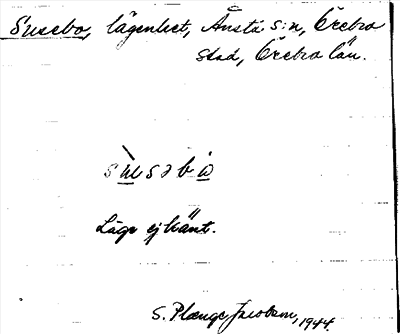 Susebo, lägenhet, Ånsta s:n, Örebro
stad, Örebro län.
sùsəbo
Läge ej känt.
S. Plænge Jacobson, 1944.